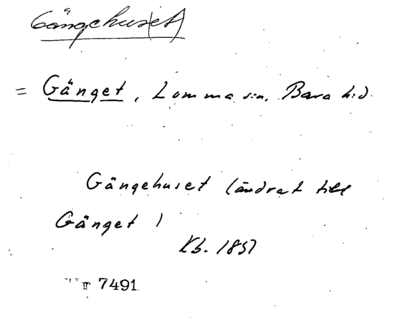 Gängehuset
= Gänget, Lomma sn, Bara hd.
Gängehuset (ändrat till
Gänget)
Kb. 1857
7491